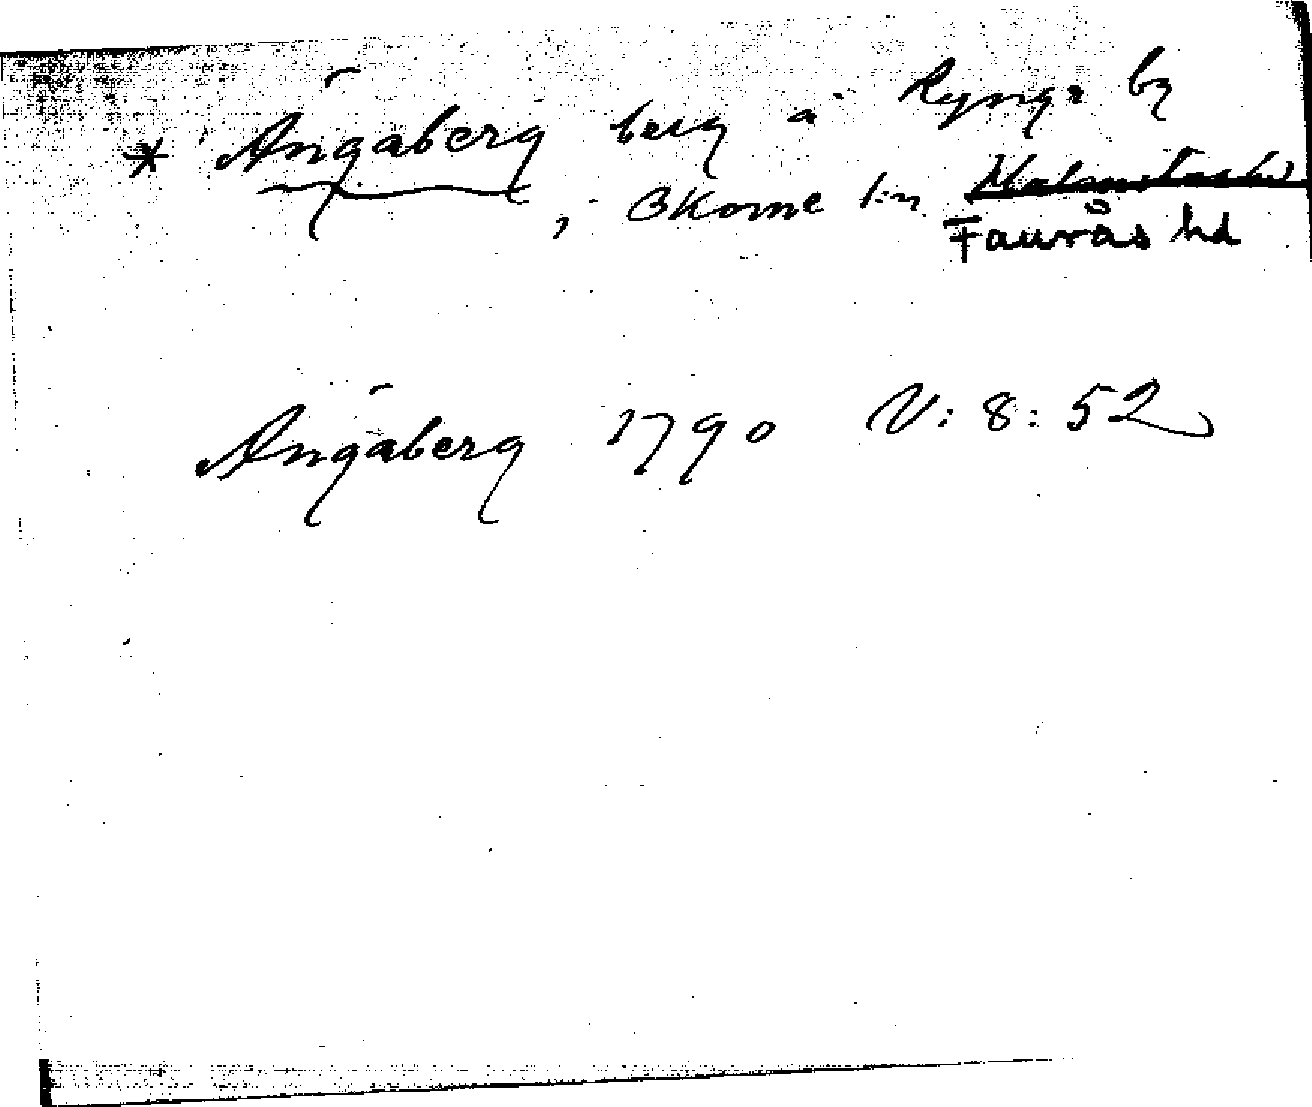 * Ängaberg berg å Rynge by
i Okome sn Halmstads
Faurås hd
Ängaberg 1790 V: 8: 52